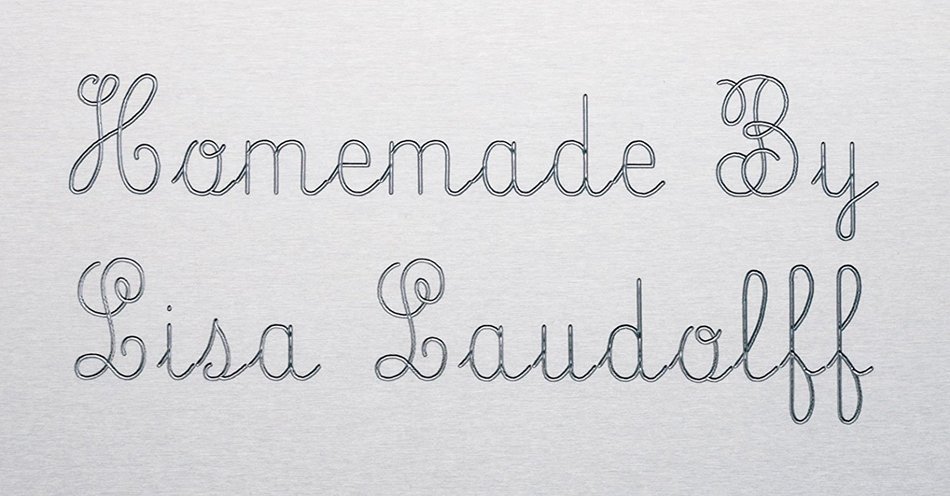 Homemade By
Lisa Laudolff